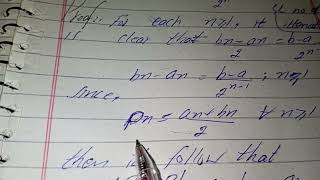 Proof: for each n≥1, it
is clear that bn-an = b-a
bn-an = b-a / 2^n-1 ; n≥1
since,
pn = an+bn / 2 ∀ n≥1
then it follow that